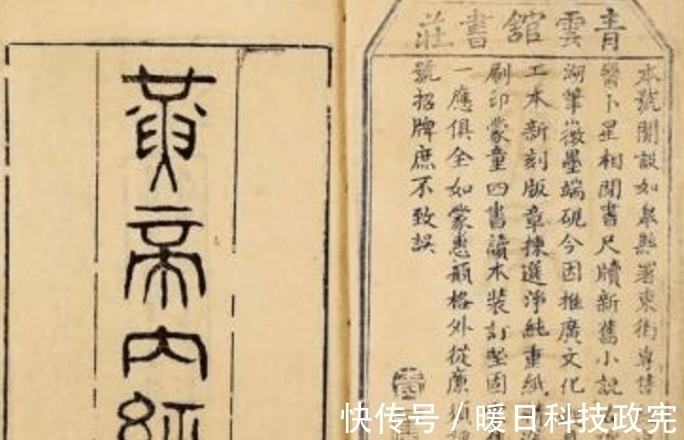 青雲舘書莊
本號開設如皐縣署東街專售
醫卜星相閒書尺牘新舊小說
湖筆徽墨端硯今因推廣文化
工本新刻版章揀選淨純重紙
刷印蒙童四書讀本裝訂堅固
一應俱全如蒙惠顧格外從廉須
號招牌庶不致誤
黃帝內經
快传号/暖日科技政宪